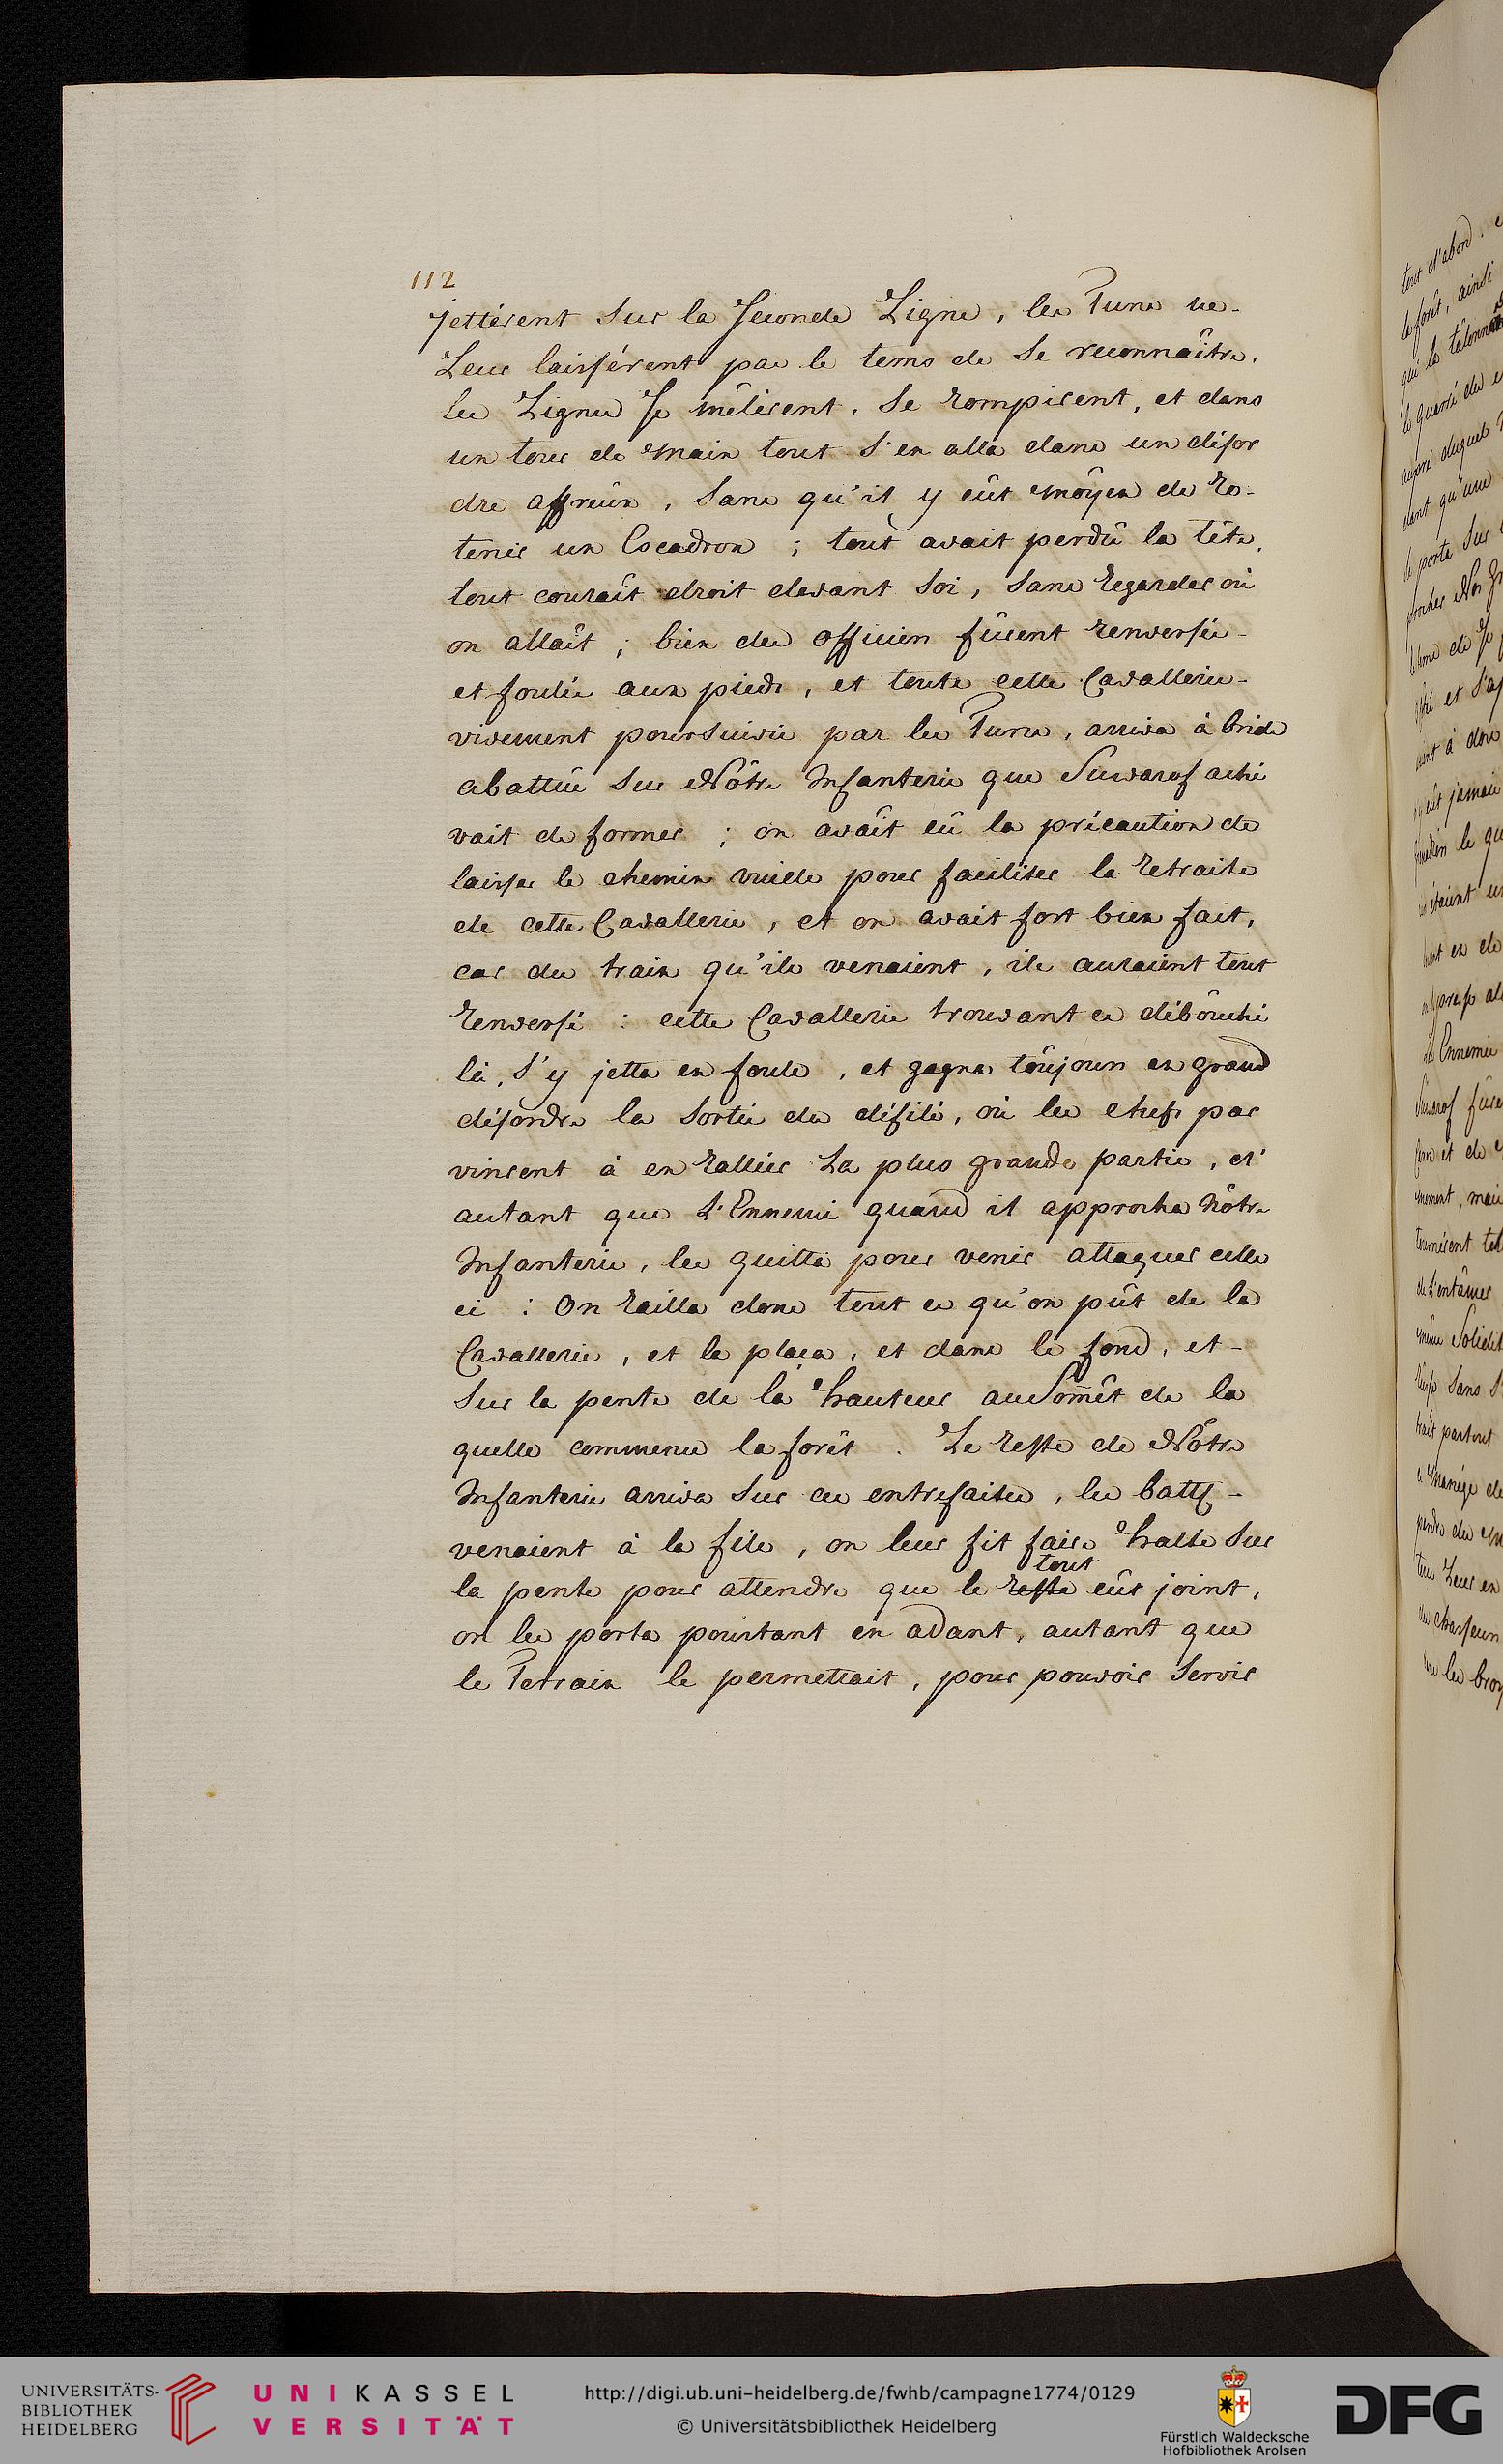 112
jettérent Sur la Seconde Ligne, les Turcs ne-
Leur laissérent pas le tems de Se reconnaître.
les Lignes Se mêlèrent, Se rompirent, et dans
un tour de main tout S'en alla dans un désor
dre affreux, Sans qu'il y eût moÿen de re-
tenir un Escadron ; tout avait perdû la tête,
tout couraît droit devant Soi, Sans regarder où
on allaît ; bien des officiers fûrent renversés-
et foulés aux pieds, et toute cette Cavallerie-
vivement poursuivie par les Turcs, arriva à bride
abattüe Sur Nôtre Infanterie que Suwarof ache
vait de former ; on avaît eû la précaution de
laisser le chemin vuide pour faciliter la retraite
de cette Cavallerie, et on avait fort bien fait,
car du train qu'ils venaient, ils auraient tout
renversé : cette Cavallerie trouvant ce débouché
là, S'y jetta en foule, et gagna toûjours en grand
désordre la Sortie du défilé, où les chefs par
vinrent à en rallier La plus grande partie, et
autant que L'Ennemi quand il approcha nôtre
Infanterie, les quitta pour venir attaquer celle
ci : On railla donc tout ce qu'on pût de la
Cavallerie, et la plaça, et dans le fond, et-
Sur la pente de la hauteur au Som̅êt de la
quelle commence la forêt. Le reste de Nôtre
Infanterie arriva Sur ces entrefaites, les batt.-
venaient à la file, on leur fit faire halte Sur
tout
la pente pour attendre que le reste eût joint,
on les porta pourtant en avant, autant que
le Terrain le permettait, pour pouvoir Servir
tout d'abord
la forêt, ainsi
aupré duquel
dant qu'une
la porte Sur
procher Nos
et S'a
à don
eût jamais
le qu
étaient un
Ennemis
Suwarof fûre
et de
moment, mais
de L'entâmer
même Solidit
Sans S
trait partout
manége de
perdre des
Leur en
chasseurs
les
UNIVERSITÄTS-
BIBLIOTHEK
HEIDELBERG
UNIKASSEL
VERSITÄT
http://digi.ub.uni-heidelberg.de/fwhb/campagne1774/0129
© Universitätsbibliothek Heidelberg
Fürstlich Waldecksche
Hofbibliothek Arolsen
DFG